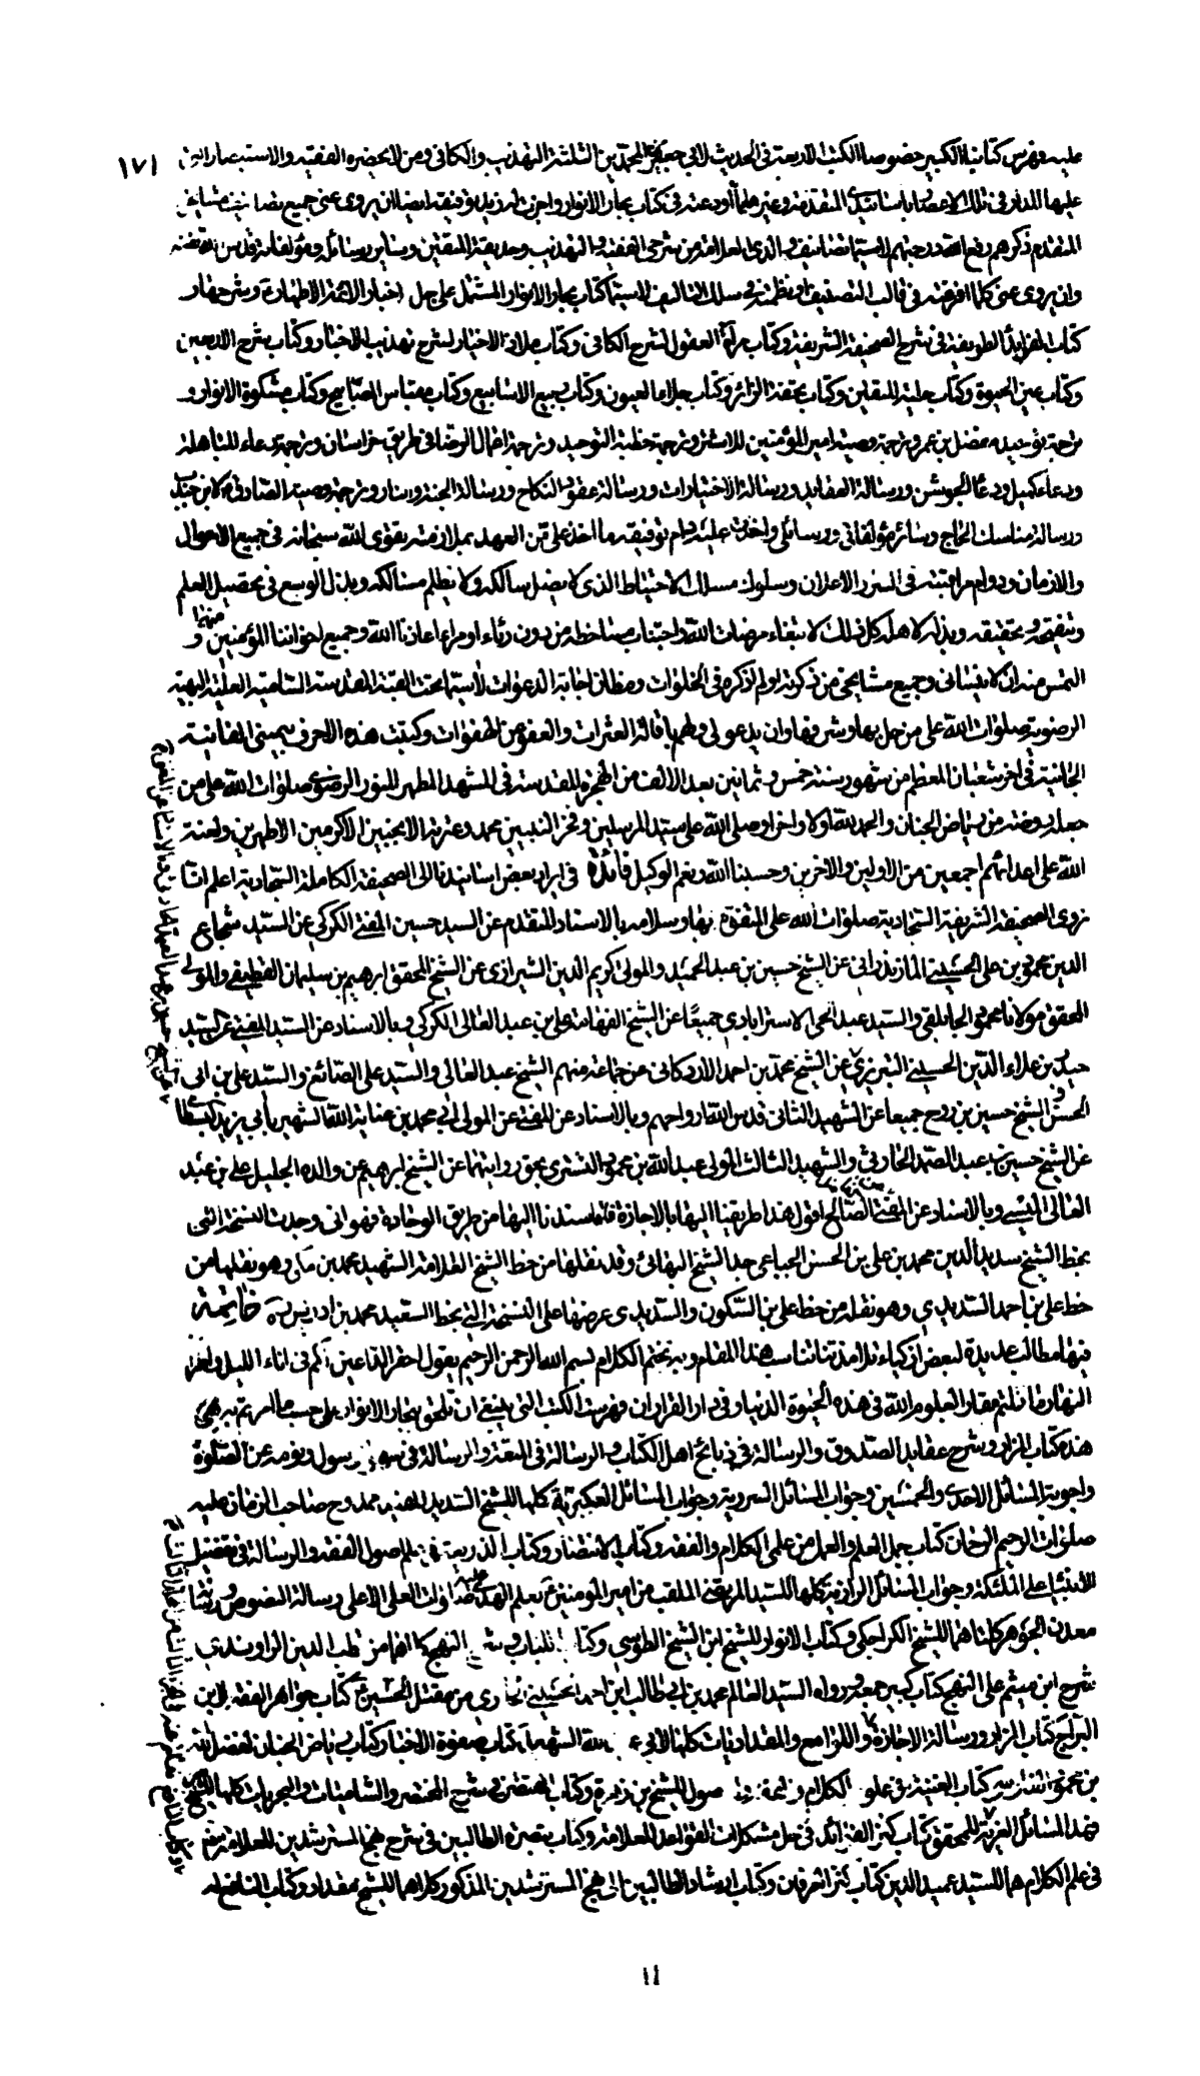 ١٧١
عليه وفهرس كتابنا الكبير خصوصا الكتب الاربعة فى الحديث لابي جعفر المحمدين الثلثة التهذيب والكافى ومن لا يحضره الفقيه والاستبصار التى
عليها المدار فى تلك الاعصار باسانيدى المتقدمة وغيرها مما أودعته فى كتاب بحار الانوار واجزت له زيد توفيقه ايضا ان يروى عنى جميع مشايخى
المتقدم ذكرهم رفع الله درجتهم لاسيما تصانيف والدى العلامة من شرحى الفقيه والتهذيب وحديقة المتقين وساير رسائله ومؤلفاته قدس الله
وان يروى عنى كلما افرغته فى قالب التصنيف او نظمته فى سلك التاليف لاسيما كتاب بحار الانوار المشتمل على جل اخبار الائمة الاطهار وشرحها و
كتاب الفرايد الطريفة فى شرح الصحيفة الشريفة وكتاب مرآة العقول لشرح الكافى وكتاب ملاذ الاخيار لشرح تهذيب الاخبار وكتاب شرح الاربعين
وكتاب عين الحيوة وكتاب حلية المتقين وكتاب تحفة الزائر وكتاب جلاء العيون وكتاب ربيع الاسابيع وكتاب مقباس المصابيح وكتاب مشكوة الانوار و
ترجمة توحيد مفضل بن عمر وترجمة وصية امير المؤمنين للاشتر وترجمة خطبة التوحيد وترجمة اعمال الرضا فى طريق خراسان وترجمة دعاء المباهلة
ودعاء كميل ودعاء الجوشن ورسالة العقايد ورسالة الاختيارات ورسالة عقود النكاح ورسالة الجنة والنار وترجمة وصية الصادق لابن جندب
ورسالة مناسك الحاج وسائر مؤلفاتى ورسائلى واخذت عليه دام توفيقه ما اخذ على من العهد بملازمة تقوى الله سبحانه فى جميع الاحوال
والازمان ودوام مراقبته فى السر والاعلان وسلوك مسلك الاحتياط الذى لا يضل سالكه ولا يظلم مسالكه وبذل الوسع فى تحصيل العلم
وتنقيحه وتحقيقه وبذله لاهله كل ذلك لابتغاء مرضات الله واجتناب مساخطه من دون رياء او مراء اعاذنا الله وجميع اخواننا المؤمنين منهما و
التمس منه ان لا ينسانى وجميع مشايخى من ذكرته او لم اذكره فى الخلوات ومظان اجابة الدعوات لاسيما تحت القبة المقدسة السامية العلية البهية
الرضوية صلوات الله على من حل بها وشرفها وان يدعو لى ولهم باقالة العثرات والعفو عن الهفوات وكتبت هذه الاحرف بيمنى الفانية
الجانية فى اخر شعبان المعظم من شهور سنة خمس وثمانين بعد الالف من الهجرة المقدسة فى المشهد المطهر المنور الرضوى صلوات الله على من
جعله روضة من رياض الجنان والحمد لله اولا واخرا وصلى الله على سيد المرسلين وفخر النبيين محمد وعترته الانجبين الاكرمين الاطهرين ولعنة
الله على اعدائهم اجمعين من الاولين والاخرين وحسبنا الله ونعم الوكيل فائدة فى ايراد بعض اسانيدنا الى الصحيفة الكاملة السجادية اعلم انا
نروى الصحيفة الشريفة السجادية صلوات الله على المتفوه بها وسلامه بالاسناد المتقدم عن السيد حسين المفتى الكركى عن السيد شجاع
الدين محمود بن على الحسينى المازندرانى عن الشيخ حسين بن عبد الحميد والمولى كريم الدين الشيرازى عن الشيخ المحقق ابرهيم بن سليمان القطيفى والمولى
المحقق مولانا محمود الجابلقى والسيد عبد الحى الاسترابادى جميعا عن الشيخ الفهامة على بن عبد العالى الكركى وبالاسناد عن السيد المفتى عن السيد
حيدر بن علاء الدين الحسينى التبريزى عن الشيخ محمد بن احمد الاردكانى عن جماعة منهم الشيخ عبد العالى والسيد على الصائغ والسيد على بن ابى
الحسن والشيخ حسين بن روح جميعا عن الشهيد الثانى قدس الله ارواحهم وبالاسناد عن المفتى عن المولى ابى محمد بن عناية الله الشهير بأبى يزيد البسطا
عن الشيخ حسين بن عبد الصمد الحارثى والشهيد الثالث المولى عبد الله بن محمود التسترى بحق روايتهما عن الشيخ ابرهيم عن والده الجليل على بن عبد
العالى الميسى وبالاسناد عن المفتى الصالح اقول هذا طريقنا اليها بالاجازة فاما سندنا اليها من طريق الوجادة فهو انى وجدت النسخة التى
بخط الشيخ سديد الدين محمد بن على بن الحسن الجباعى جد الشيخ البهائى وقد نقلها من خط الشيخ العلامة الشهيد محمد بن مكى وهو نقلها من
خط على بن احمد السديدى وهو نقله من خط على بن السكون والسديدى عرضها على النسخة التى بخط السعيد محمد بن ادريس خاتمة
فيها مطالب عديدة لبعض ازكياء تلامذتنا تناسب هذا المقام وبه نختم الكلام بسم الله الرحمن الرحيم يقول احقر الداعين لكم فى اناء الليل
النهار ان فهرست الكتب التى ينبغى ان تلحق ببحار الانوار على حسب ما امرتم به هى
هذه كتاب المزار وشرح عقايد الصدوق والرسالة فى ذبائح اهل الكتاب والرسالة فى المتعة والرسالة فى سهو رسول ونومه عن الصلوة
واجوبة المسائل الاحدى والخمسين وجواب المسائل السروية وجواب المسائل العكبرية كلها للشيخ السديد المفيد ممدوح صاحب الزمان عليه
صلوات الرحيم الرحمان كتاب جمل العلم والعمل من علمى الكلام والفقه وكتاب الانتصار وكتاب الذريعة فى علم اصول الفقه والرسالة فى تفضيل
الانبياء على الملئكة وجواب المسائل الرازية كلها للسيد المرتضى الملقب من امير المؤمنين بعلم الهدى عليه صلوات العلى الاعلى ورسالة النصوص وكتاب
معدن الجواهر كلاهما للشيخ الكراجكى وكتاب الانوار للشيخ ابن الشيخ الطوسى وكتاب اللباب وشرح النهج كلاهما من قطب الدين الراوندى
شرح ابن ميثم على النهج كتاب كبير جمعه ورواه السيد العالم محمد بن ابى طالب ابن احمد الحسينى الحايرى من مقتل الحسين كتاب جواهر الفقه لابن
البراج كتاب المزار ورسالة الاجازة واللوامع والمقداديات كلها للشهيد كتاب صفوة الاخبار كتاب رياض الجنان لفضل الله
بن محمود الفارسى كتاب الغنية فى علوم الكلام والفقه والاصول للشيخ بن زهرة وكتاب المقتصر فى شرح المختصر والشاميات والبحريات كلها للشيخ
فهد المسائل العزية للمحقق كتاب كنز الفوائد فى حل مشكلات القواعد للعلامة وكتاب تبصرة الطالبين فى شرح نهج المسترشدين للعلامة
فى علم الكلام هما للسيد عميد الدين كتاب كنز العرفان وكتاب ارشاد الطالبين الى نهج المسترشدين المذكور كلاهما للشيخ مقداد وكتاب النافع
١١